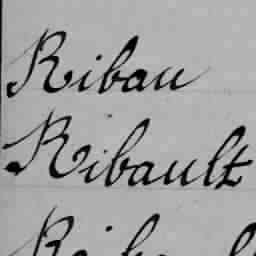 Ribau
Ribault